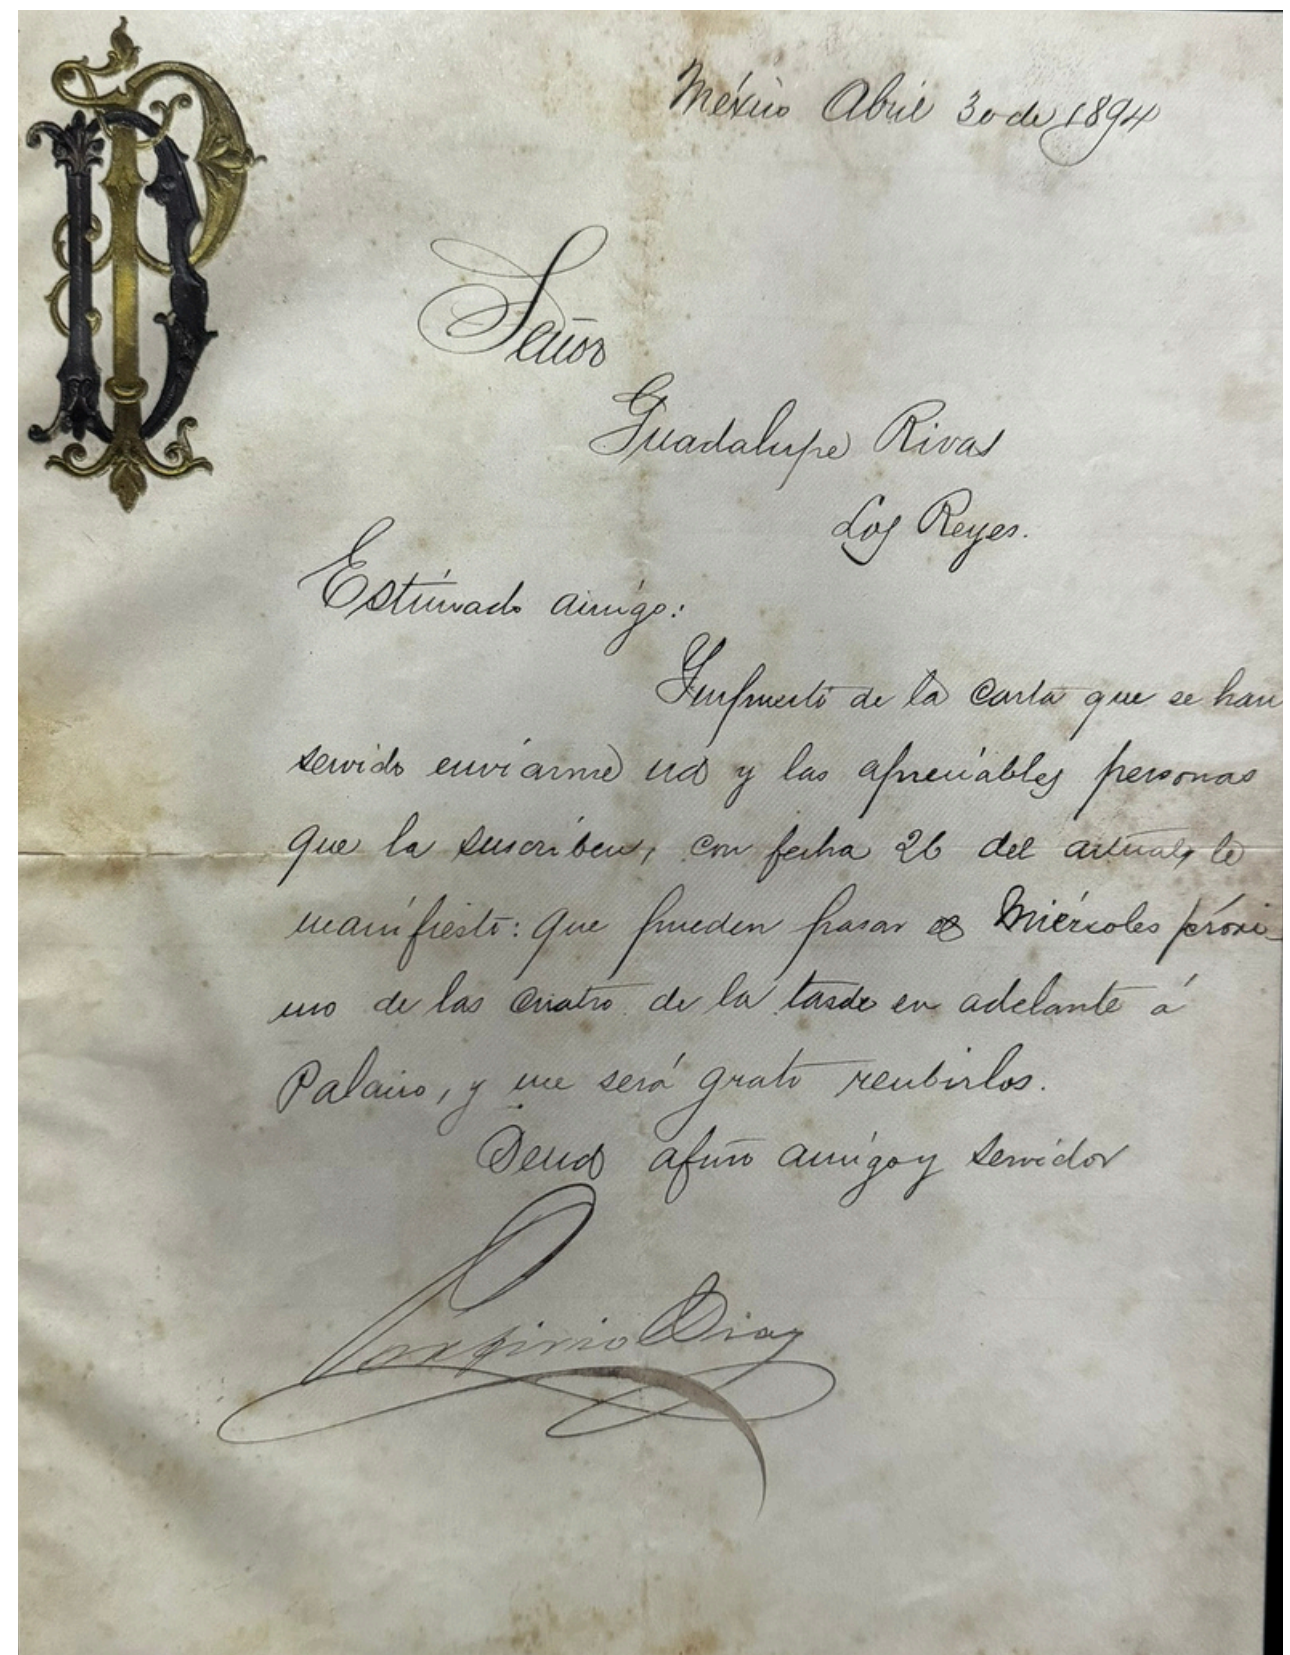 PD
México Abril 30 de 1894
Señor
Guadalupe Rivas
Los Reyes.
Estimado amigo:
Impuesto de la carta que se han
servido enviárme ud y las apreciables personas
que la suscriben, con fecha 26 del actual, le
manifiesto: que pueden pasar el Miércoles próxi-
mo de las cuatro de la tarde en adelante á
Palacio, y me será grato recibirlos.
De ud afmo amigo y servidor
Porfirio Diaz